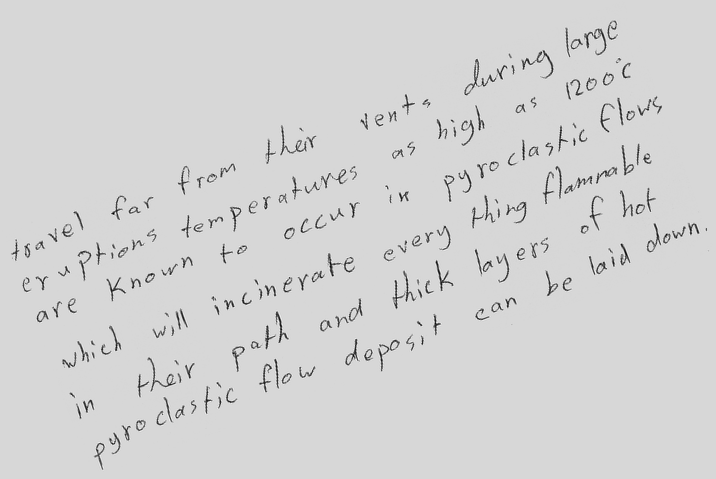 travel far from their vents during large
eruptions temperatures as high as 1200°C
are known to occur in pyroclastic flows
which will incinerate every thing flammable
in their path and thick layers of hot
pyroclastic flow deposit can be laid down.